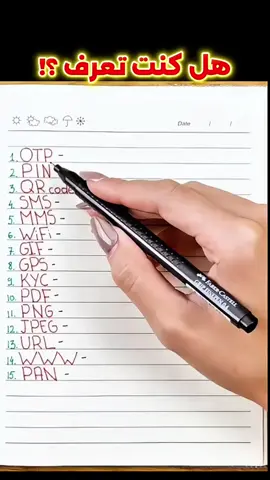 هل كنت تعرف ؟!
Date / /
1. OTP -
2. PIN
3. QR code
4. SMS -
5. MMS -
6. WiFi -
7. GIF -
8. GPS -
9. KYC -
10. PDF -
11. PNG -
12. JPEG -
13. URL -
14. WWW -
15. PAN -
FABER-CASTELL